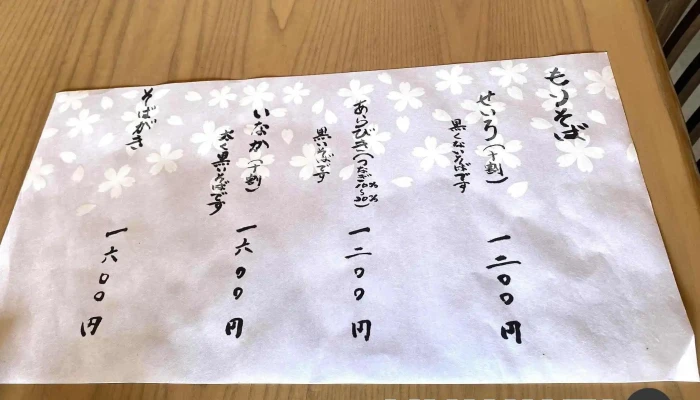 もりそば
せいろ(十割)
黒くないそばです
一二〇〇円
あらびき(つなぎ10%~20%)
黒いそばです
一二〇〇円
いなか(十割)
太く黒いそばです
一六〇〇円
そばがき
一六〇〇円